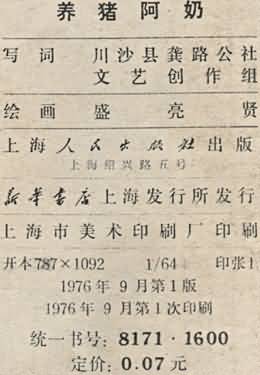 养猪阿奶
写词 川沙县龚路公社
文艺创作组
绘画 盛亮贤
上海人民出版社出版
上海绍兴路五号
新华书店上海发行所发行
上海市美术印刷厂印刷
开本787×1092 1/64 印张1
1976年9月第1版
1976年9月第1次印刷
统一书号：8171·1600
定价：0.07元